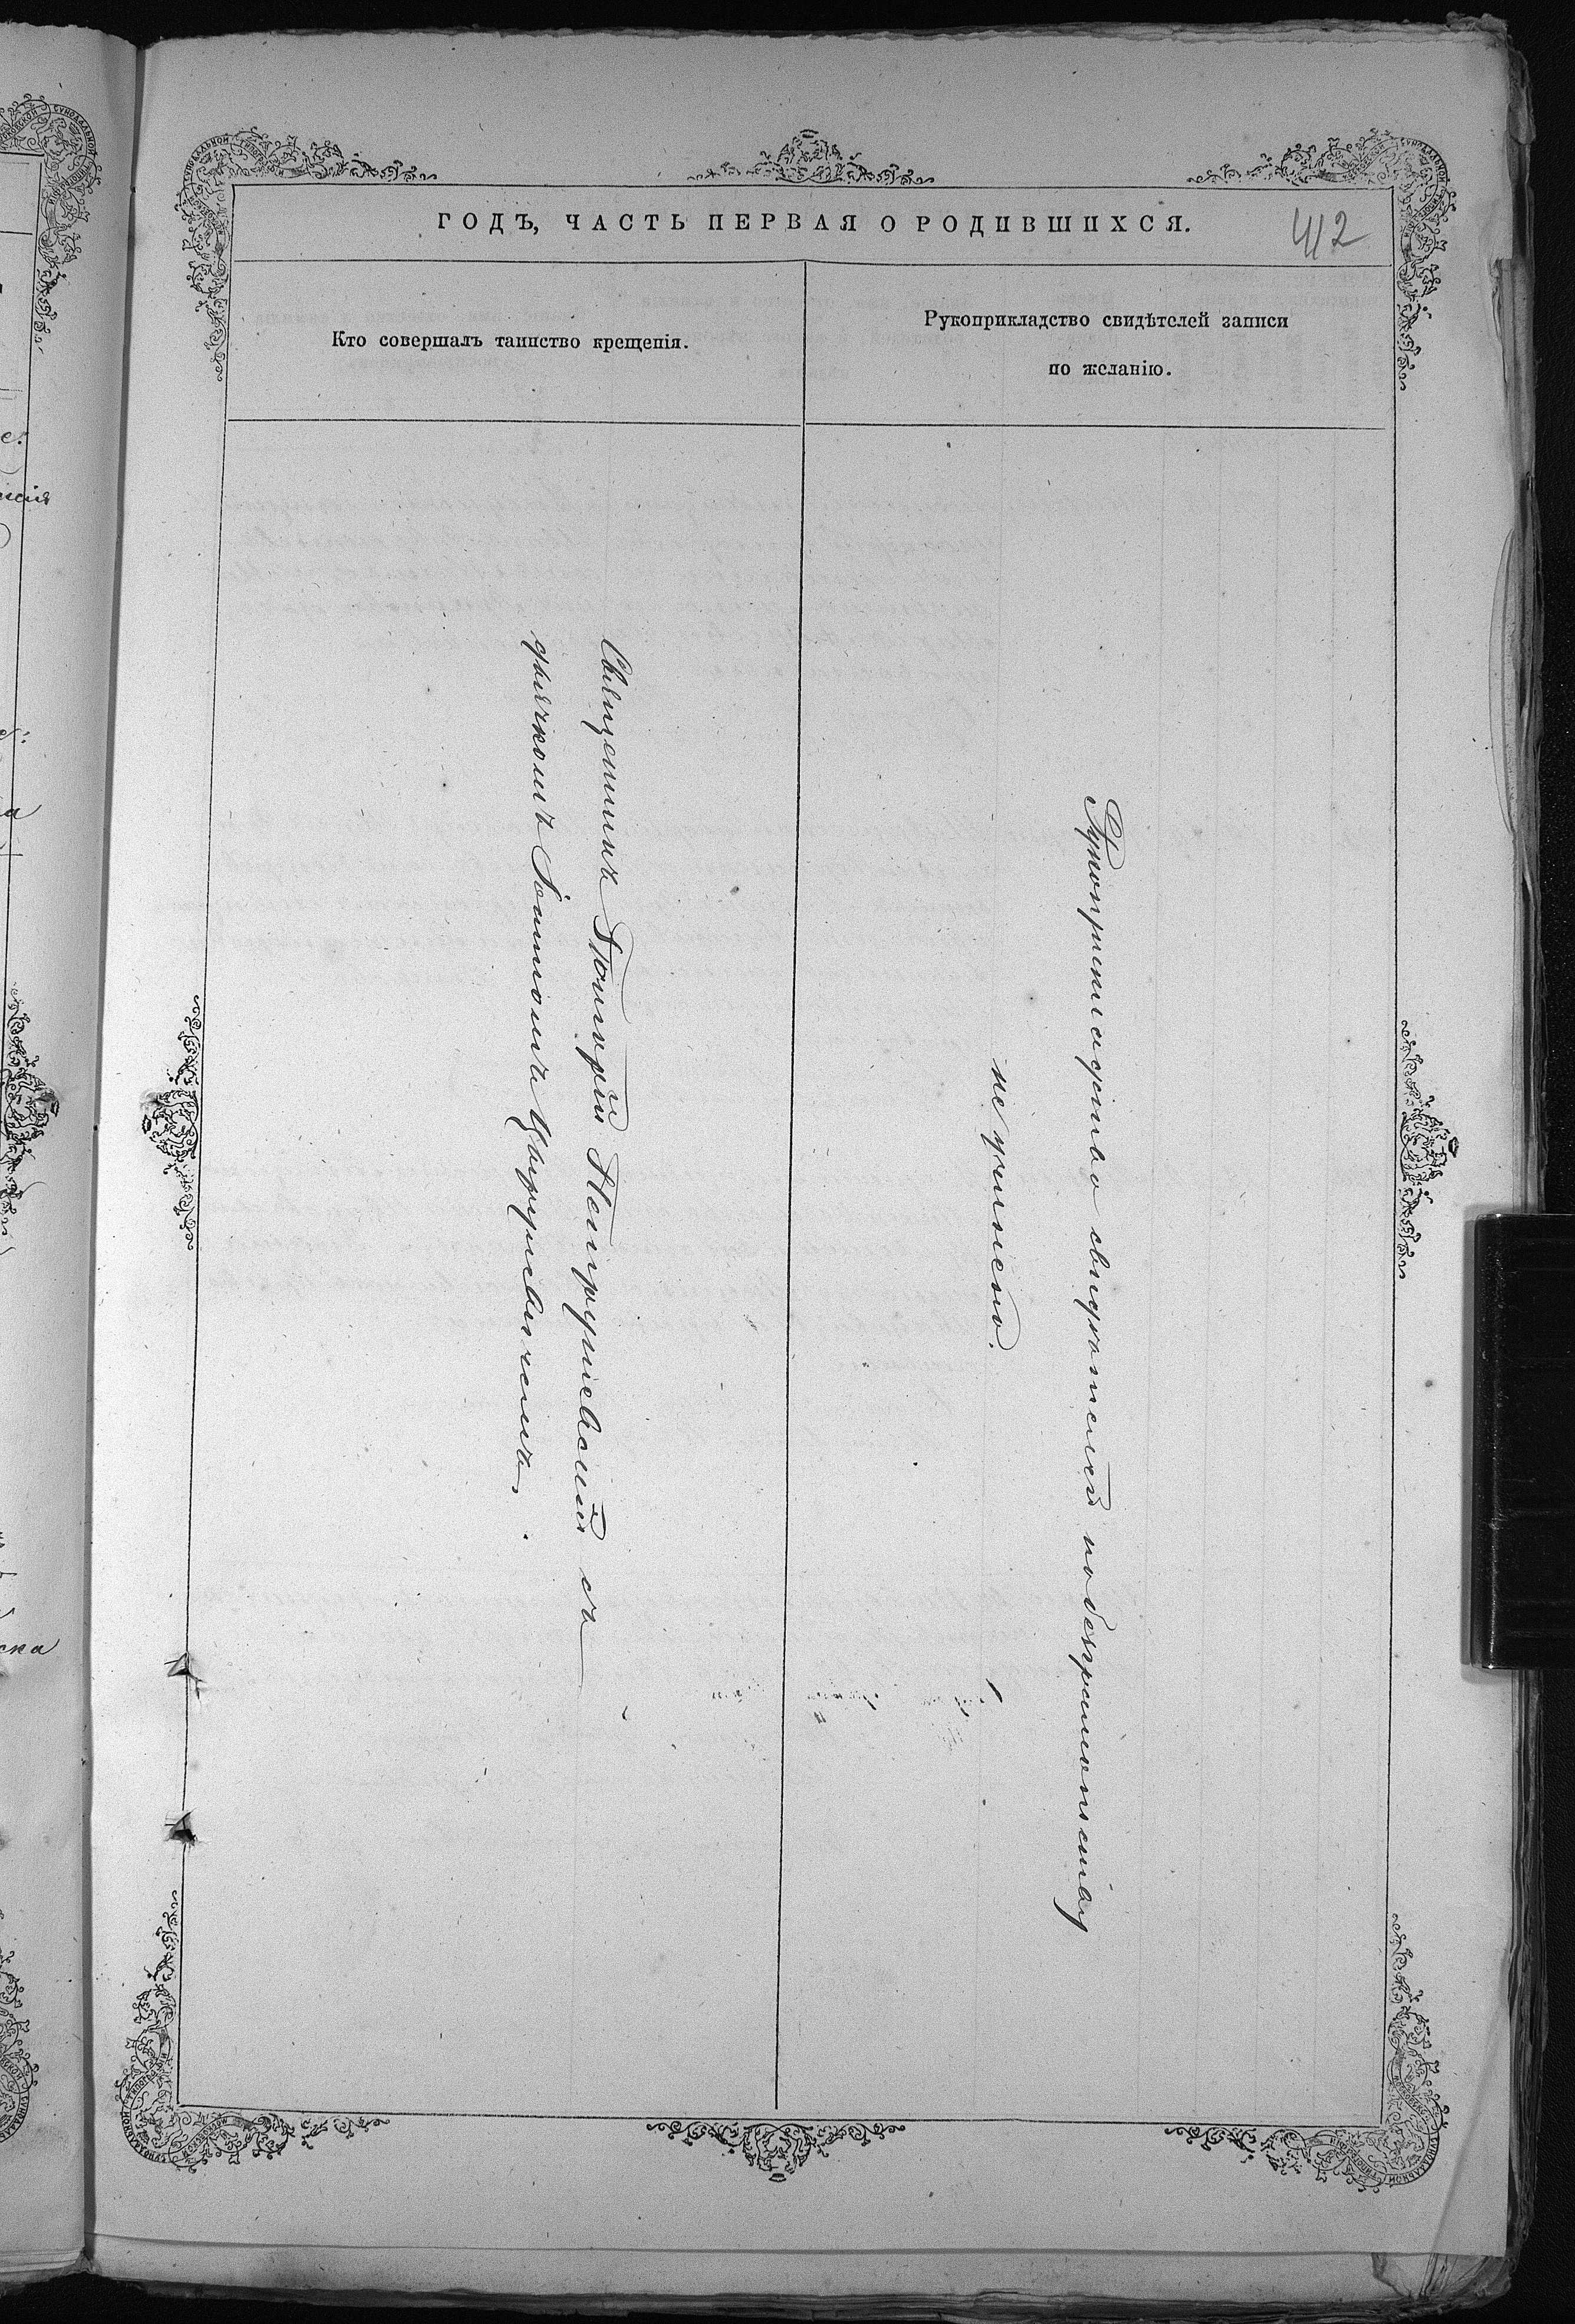 ГОДЪ, ЧАСТЬ ПЕРВАЯ О РОДИВШИХСЯ.
412
Кто совершалъ таинство крещенія.
Рукоприкладство свидѣтелей записи
по желанію.
Священникъ Григорій Петрушевскій съ
дьячкомъ Іоанномъ
Рукоприкладство свидѣтелей по безграмотству
не учинено.